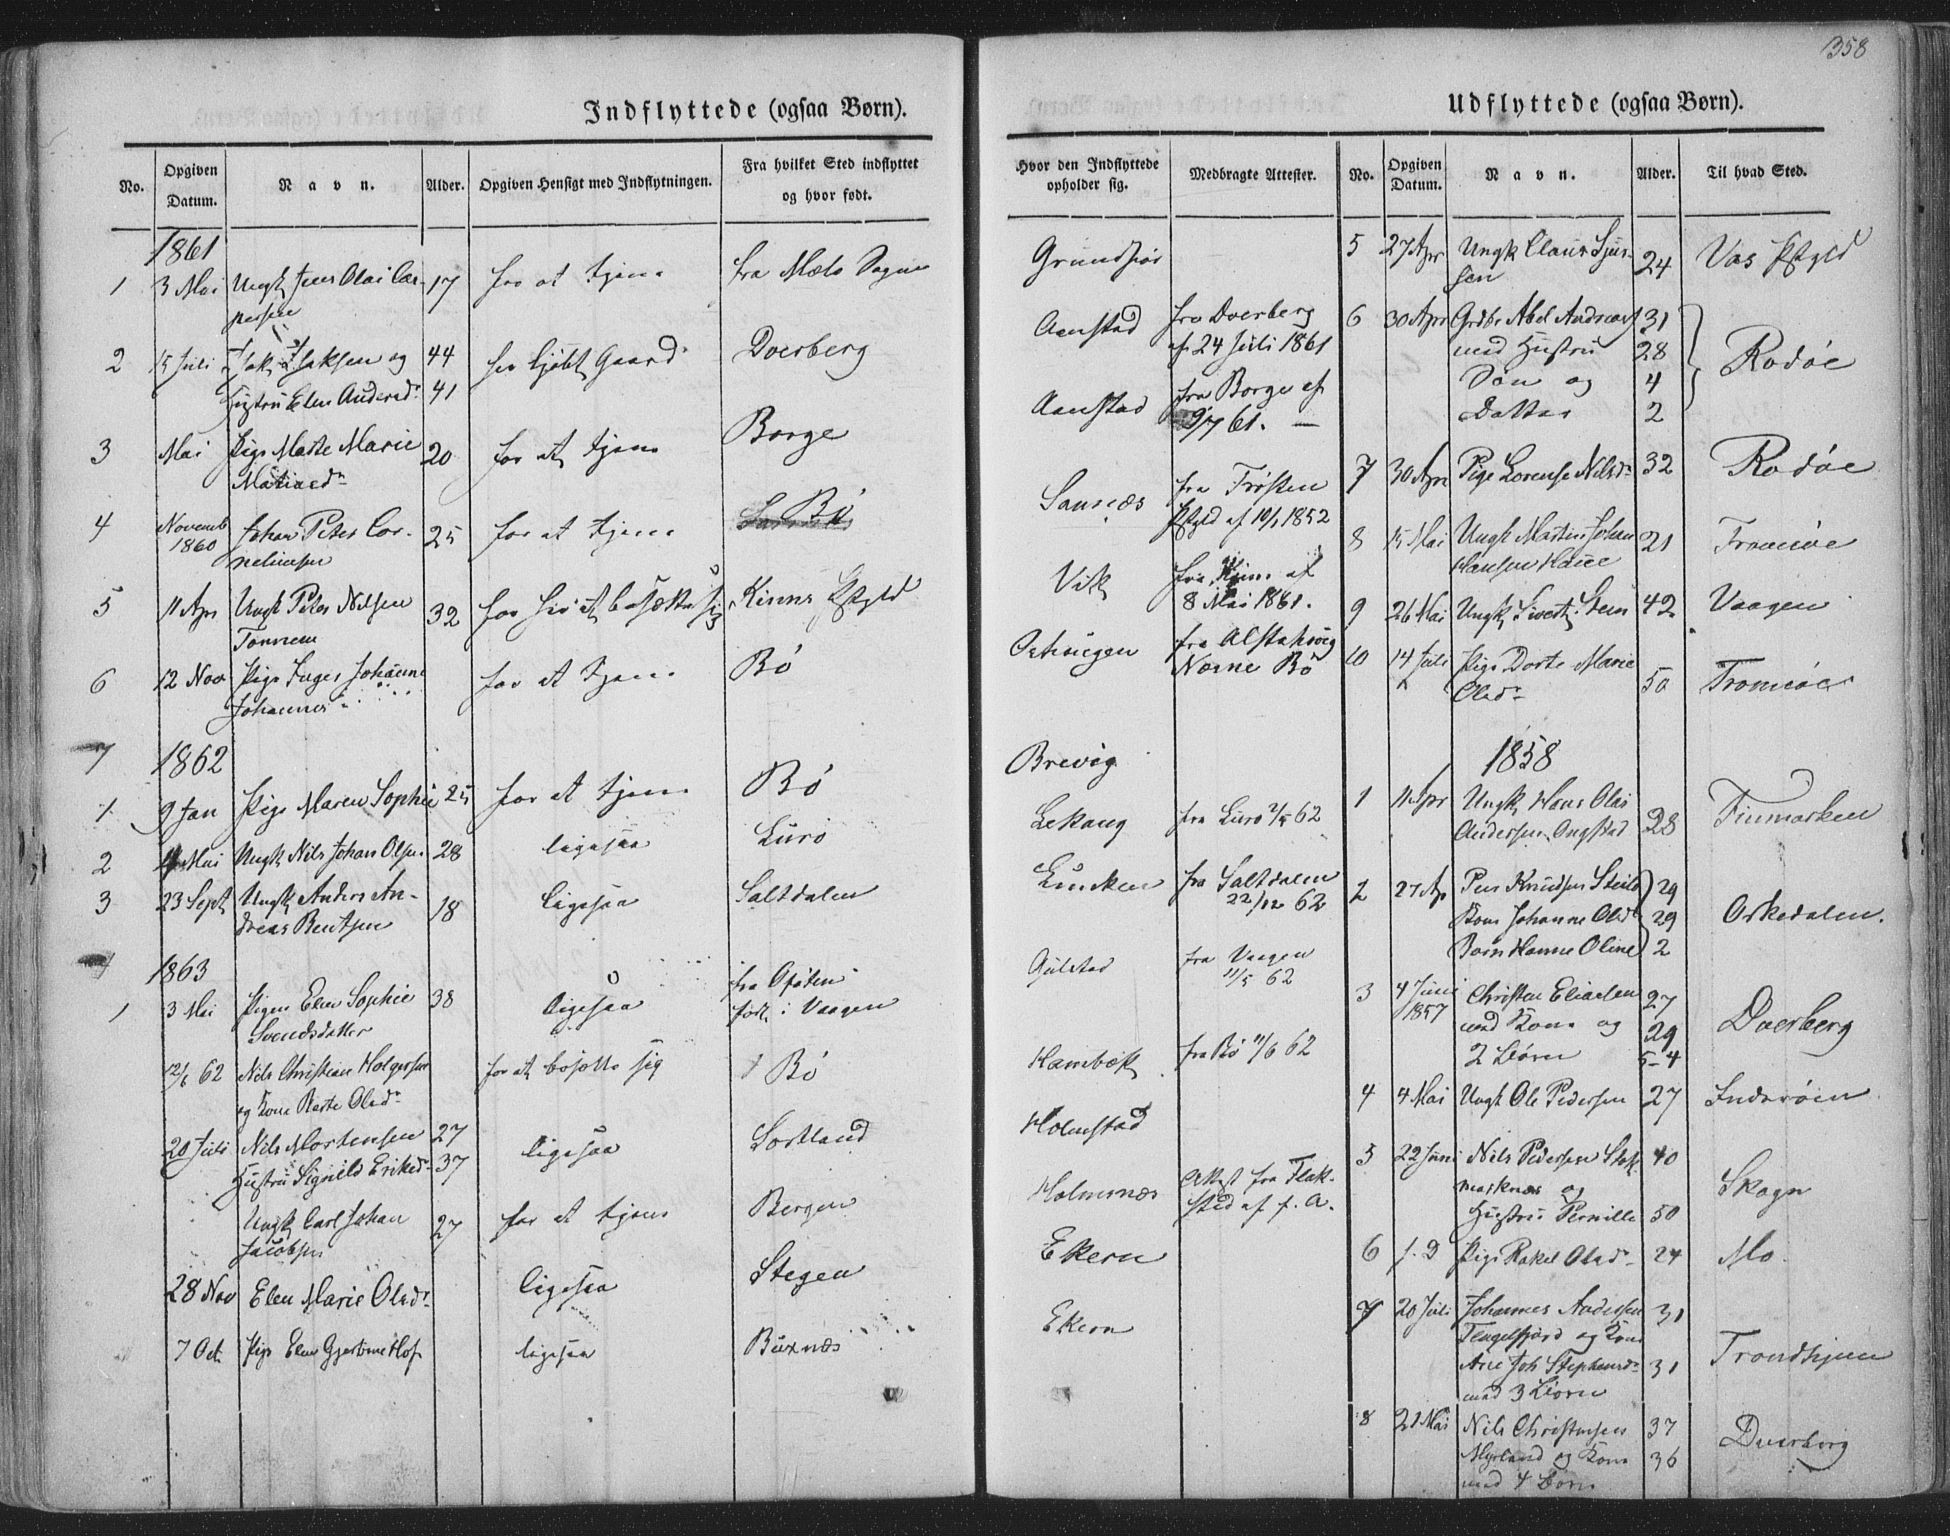 358
Indflyttede (ogsaa Børn).
No.
Opgiven Datum.
Navn.
Alder.
Opgiven Hensigt med Indflytningen.
Fra hvilket Sted indflyttet og hvor født.
1861
1 3 Mai Ungk Jens Olai Cas- 17 for at tjene fra Mels Sogn
persen
2 15 Juli Isak Isaksen og 44 har kjøbt Gaard Dverberg
Hustru Elen Andersdr 41
3 Mai Pige Marte Marie 20 for at tjene Borge
Matiasdr
4 Novemb Johan Peter Cor- 25 for at tjene Bø
1860 neliusen
5 11 Apr Ungk Peter Nilsen 32 for her at bosætte sig Kinns Pstgld
6 12 Nov Pige Inger Johanne for at tjene Bø
Johannes
7 1862
1 9 Jan Pige Maren Sophie 25 for at tjene Bø
2 Mai Ungk Nils Johan Olsen 28 ligesaa Lurø
3 23 Sept Ungk Anders An- 18 ligesaa Saltdalen
dreas Bentsen
1863
1 3 Mai Pigen Elen Sophie 38 ligesaa fra Ofoten
Svendsdatter født i Vaagen
12/6 62 Nils Christian Holgersen for at bosætte sig Bø
og Kone Berte Olsdr
20 Juli Nils Mortensen 27 ligesaa Sortland
Hustru Signild Eriksdr 37
Ungk Carl Johan 27 for at tjene Bergen
Jacobsen
28 Nov Elen Marie Olsdr ligesaa Stegen
7 Oct Pige Elen Gjertine Hof ligesaa Buxnæs
Udflyttede (ogsaa Børn).
Hvor den Indflyttede opholder sig.
Medbragte Attester.
No.
Opgiven Datum.
Navn.
Alder.
Til hvad Sted.
Grundfør
Aanstad fra Dverberg
af 24 Juli 1861
Aanstad fra Borge af
9/7 61. —
Sansnæs fra Trøsten
Pstgld af 10/1 1852
Vik fra Kinn af
8 Mai 1861.
fra Alstahoug
Nærne Bø
Brevig
Lekang fra Lurø 2/5 62
Luncken fra Saltdalen
22/12 62
Gulstad fra Vaagen
11/5 62
Kambek fra Bø 11/6 62
Holmstad
Holmsnæs Attest fra Flak-
sted af f. A.
Ekern
Ekern
5 27 Apr Ungk Claus Sjur- 24 Vos Pstgld
sen
6 30 Apr Grdbr Abel Andreas 31 Rødøe
med Hustru 28
Søn og 4
Datter 2
7 30 Apr Pige Lorense Nilsdr 32 Rødøe
8 15 Mai Ungk Martin Johan 21 Tromsøe
Hansen
9 26 Mai Ungk Sivert Stein 42 Vaagen
10 14 Juli Pige Dorte Marie 50 Tromsøe
Olsdr
1858
1 11 Apr Ungk Hans Olai 28 Finmarken
Andersen Ongstad
2 27 Ap Peer Knudsen 29 Orkedalen.
Kone Johanne Olsdr 29
Barn Hanne Oline 2
3 4 Juni Christen Eliassen 27 Dverberg
1857 med Kone og 29
2 Børn 5-4
4 4 Mai Ungk Ole Pedersen 27 Inderøen
5 22 Juni Nils Pedersen Stok- 40 Skogn
marknæs og
Hustru Pernille 50
6 s. D Pige Rakel Olsdr 24 Mo
7 20 Juli Johannes Andersen 31 Trondhjem
Tengelfjord og Kone
Ane Joh Stephensdr 31
med 3 Børn
8 21 Mai Nils Christensen 37 Dverberg
Myrland og Kone 36
med 4 Børn